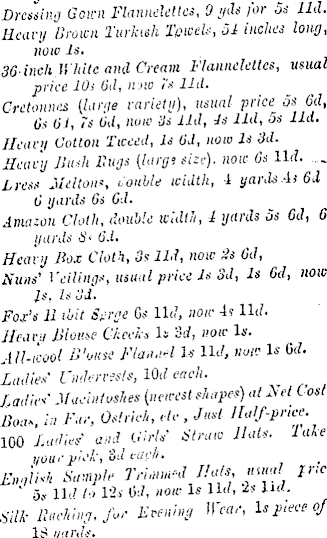 Dressing Gown Flannelettes, 9 yds for 5s 11d.
Heavy Brown Turkish Towels, 54 inches long,
now 1s.
36-inch White and Cream Flannelettes, usual
price 10s 6d, now 7s 11d.
Cretonnes (large variety), usual price 5s 6d,
6s 6d, 7s 6d, now 3s 11d, 4s 11d, 5s 11d.
Heavy Cotton Tweed, 1s 6d, now 1s 3d.
Heavy Bush Rugs (large size), now 6s 11d.
Dress Meltons, double width, 4 yards 4s 6d
6 yards 6s 6d.
Amazon Cloth, double width, 4 yards 5s 6d, 6
yards 8s 6d.
Heavy Box Cloth, 3s 11d, now 2s 6d,
Nuns' Veilings, usual price 1s 3d, 1s 6d, now
1s, 1s 3d.
Fox's Habit Serge 6s 11d, now 4s 11d.
Heavy Blouse Checks 1s 3d, now 1s.
All-wool Blouse Flannel 1s 11d, now 1s 6d.
Ladies' Undervests, 10d each.
Ladies' Macintoshes (newest shapes) at Net Cost
Boas, in Fur, Ostrich, etc, Just Half-price.
100 Ladies' and Girls' Straw Hats. Take
your pick, 3d each.
English Sample Trimmed Hats, usual pric
5s 11d to 12s 6d, now 1s 11d, 2s 11d.
Silk Ruching, for Evening Wear, 1s piece of
18 yards.